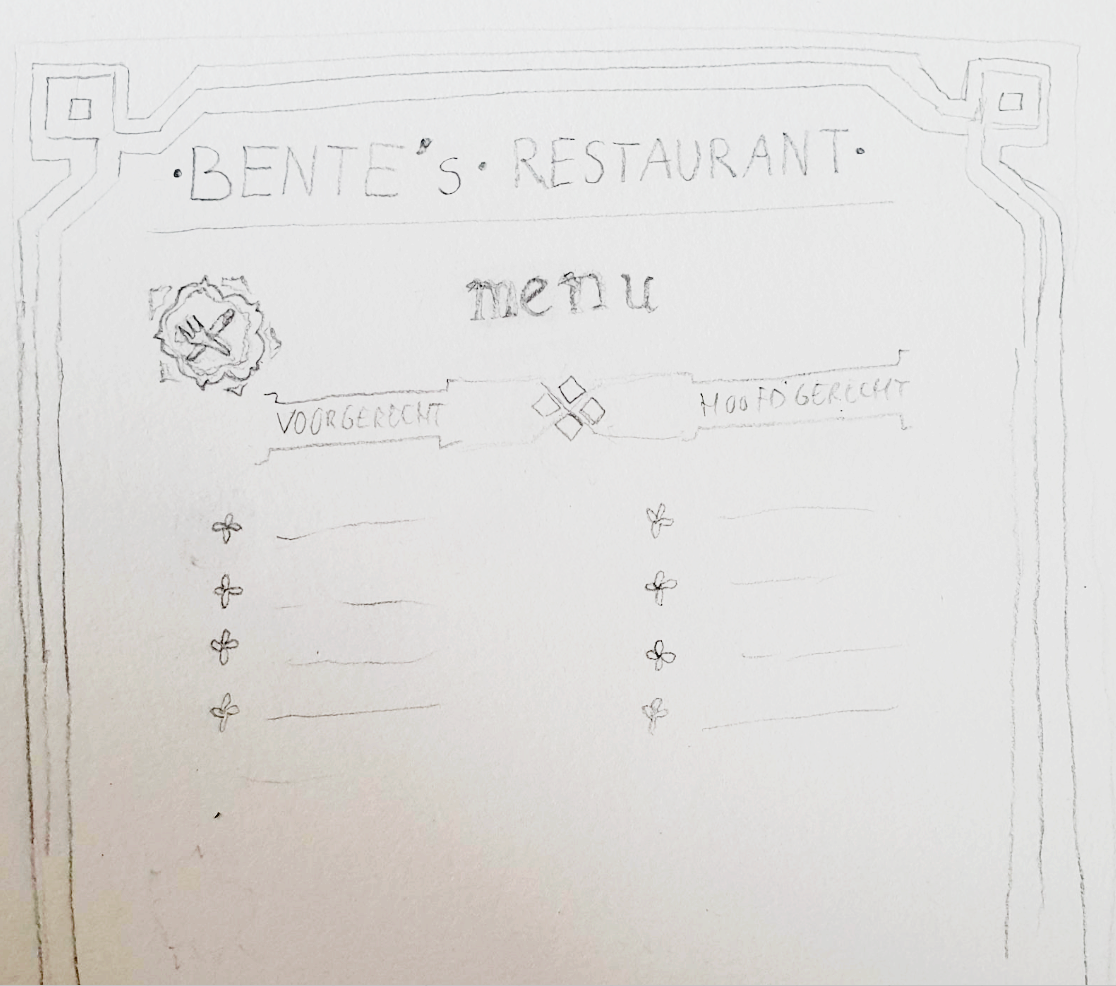 ·BENTE's· RESTAURANT·
menu
VOORGERECHT HOOFDGERECHT